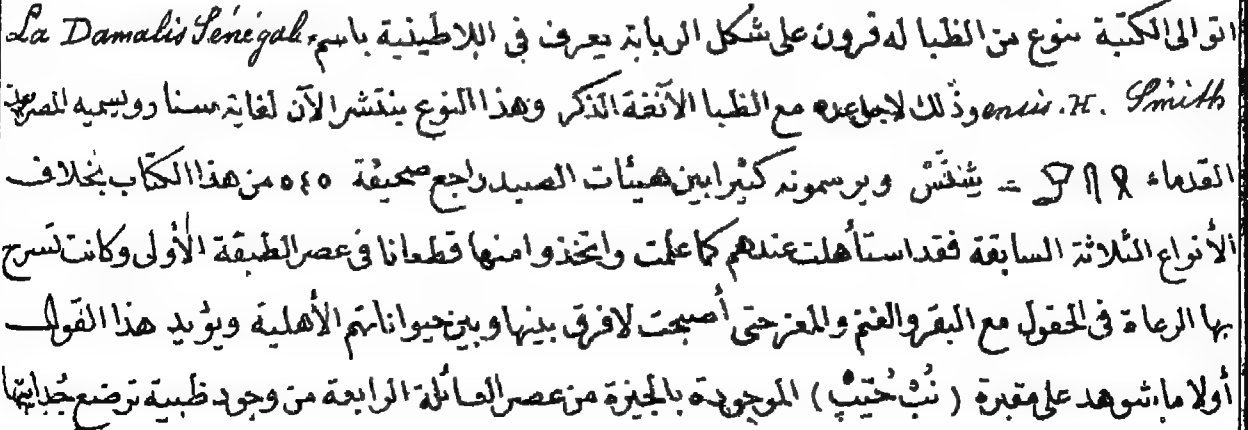 اتو الى الكتبة نوع من الظبا له قرون على شكل الربابة يعرف فى اللاطينية باسم La Damalis Sénégal
ensis. H. Smith وذلك لاجل عده مع الظبا الآنفة الذكر وهذا النوع ينتشر الآن لغاية سنار ويسميه المصريون
القدماء = شتش ويرسمونه كثيرا بين هيئات الصيد راجع صحيفة ٥٤٥ من هذا الكتاب بخلاف
الأنواع الثلاثة السابقة فقد استأهلت عندهم كما علمت واتخذوا منها قطعانا فى عصر الطبقة الأولى وكانت تسرح
بها الرعاة فى الحقول مع البقر والغنم والمعز حتى أصبحت لا فرق بينها وبين حيواناتهم الأهلية ويؤيد هذا القول
أولا ما شوهد على مقبرة (نُبْ حُتِبْ) الموجودة بالجيزة من عصر العائلة الرابعة من وجود ظبية ترضع جدايتها